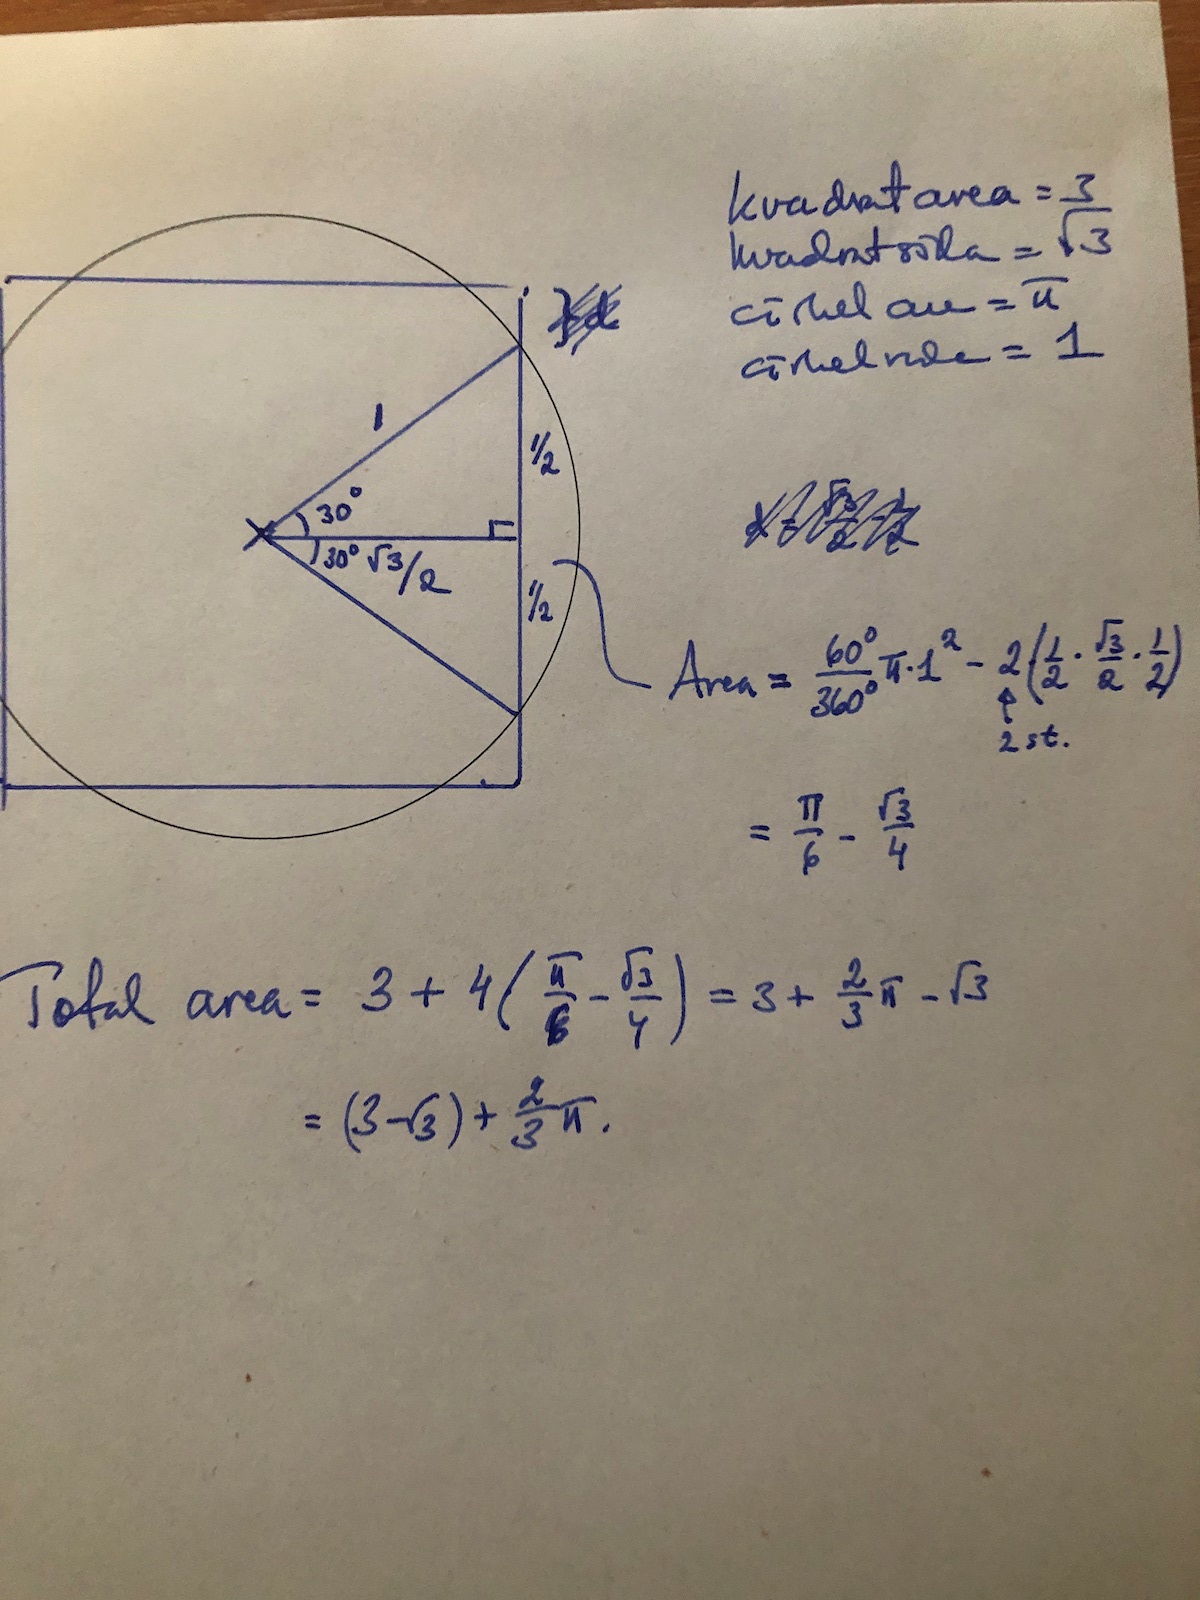 kvadratarea = 3
kvadratsida = √3
cirkel area = π
cirkelradie = 1
1
1/2
30°
30° √3/2
1/2
Area = 60°/360° π·1² - 2(1/2 · √3/2 · 1/2)
2 st.
= π/6 - √3/4
Total area = 3 + 4(π/6 - √3/4) = 3 + 2/3 π - √3
= (3-√3) + 2/3 π.